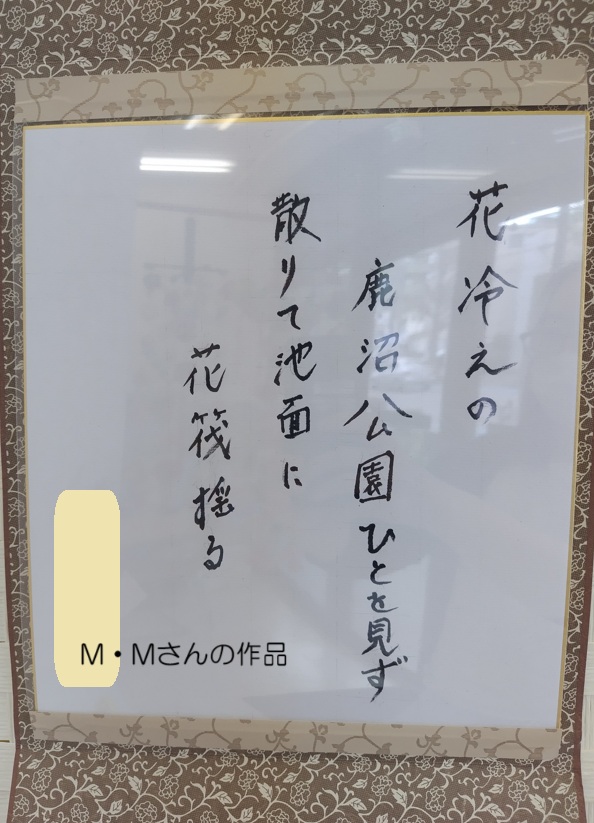 花冷えの
鹿沼公園ひとを見ず
散りて池面に
花筏揺る
M・Mさんの作品